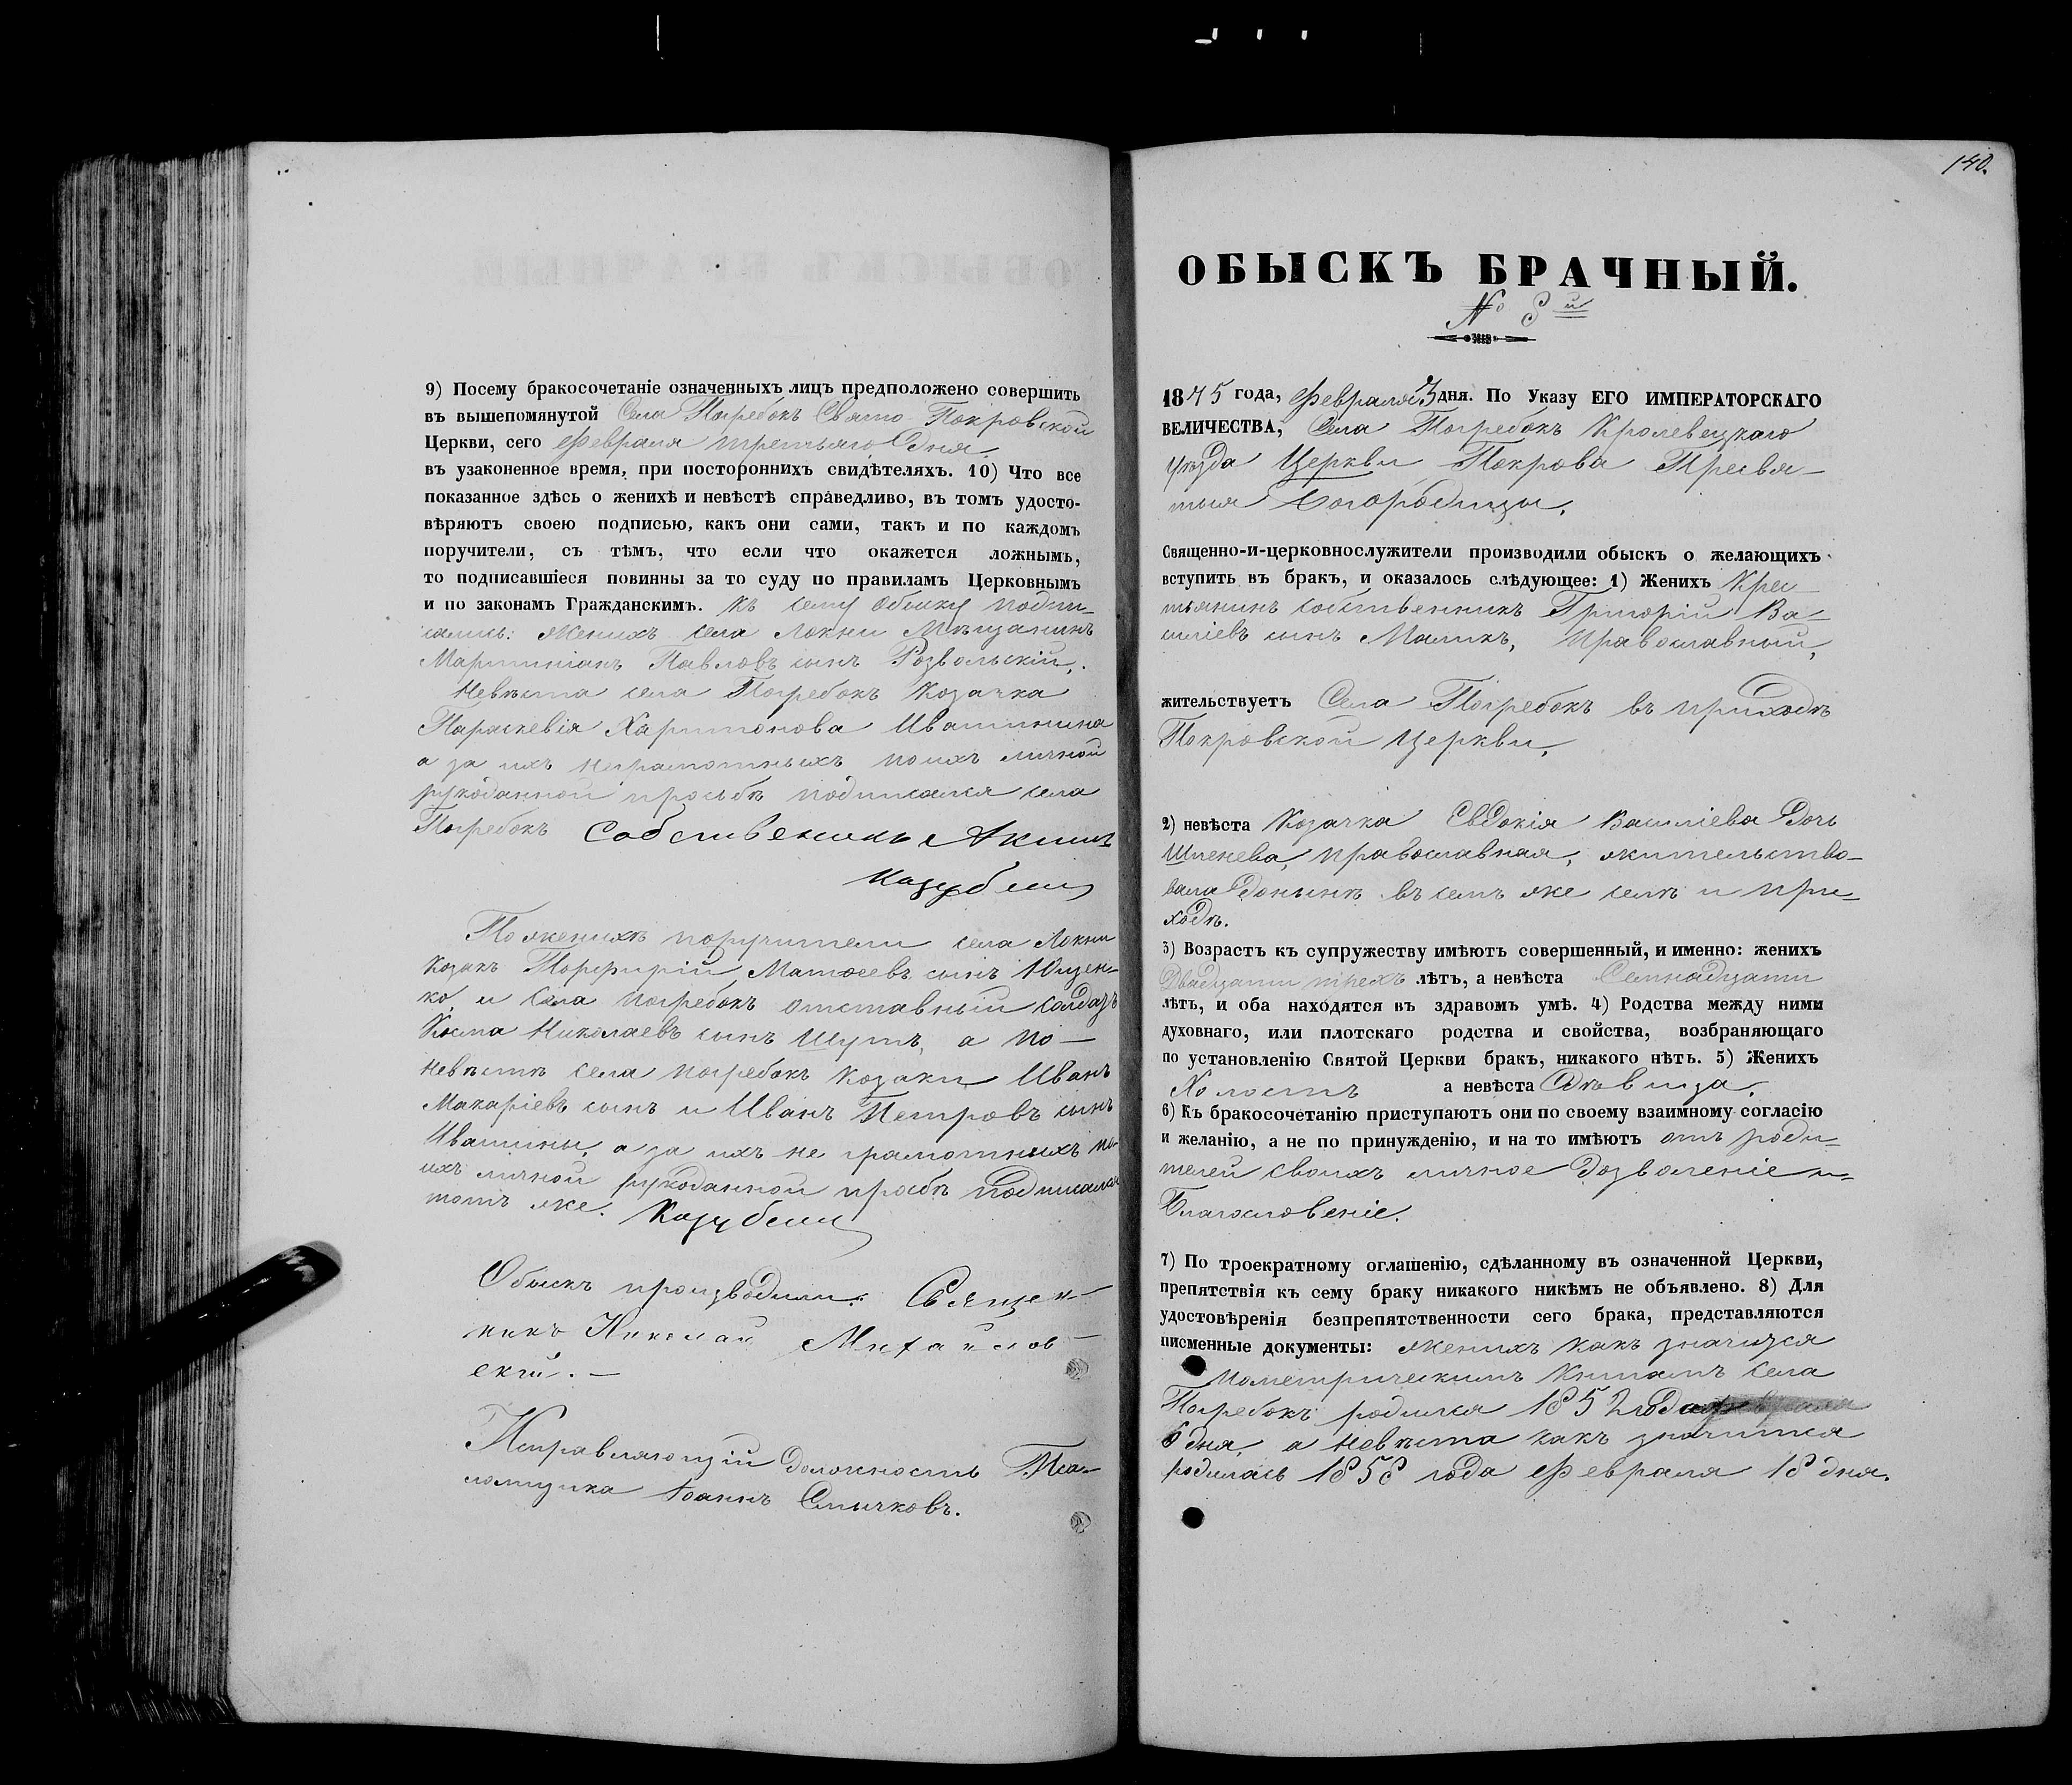 9) Посему бракосочетаніе означенныхъ лицъ предположено совершить
въ вышепомянутой Села Погребокъ Свято Покровской
Церкви, сего Февраля третьяго Дня.
въ узаконенное время, при постороннихъ свидѣтеляхъ. 10) Что все
показанное здѣсь о женихѣ и невѣстѣ справедливо, въ томъ удосто-
вѣряютъ своею подписью, какъ они сами, такъ и по каждомъ
поручители, съ тѣмъ, что если что окажется ложнымъ,
то подписавшіеся повинны за то суду по правиламъ Церковнымъ
и по законамъ Гражданскимъ. Къ сему обыску подпи-
сались: Женихъ села Локни Мѣщанинъ
Мартиніанъ Павловъ сынъ Розвольскій,
Невѣста села Погребокъ Козачка
Параскевія Харитонова Ивашинина
а за ихъ неграмотныхъ по ихъ личной
рукоданной просьбѣ подписался села
Погребокъ Собственикъ Акимъ
Казубеи
По женихѣ поручители села Локни
Козакъ Порфирій Матѳеевъ сынъ Ющен-
ко, и Села Погребокъ отставный солдатъ
Косма Николаевъ сынъ Шутъ, а по-
невѣстѣ села Погребокъ Козаки Иванъ
Макаріевъ сынъ и Иванъ Петровъ сынъ
Ивашины, а за ихъ не грамотныхъ по
ихъ личной рукоданной прозбѣ подписался
тотъ же. Казубеи
Обыскъ производили: Священ-
никъ Николай Михайлов-
скій. —
Исправляющій Должность Пса-
ломщика Іоаннъ Смычковъ.
140.
ОБЫСКЪ БРАЧНЫЙ.
№ 8й
1875 года, Февраля 3 дня. По Указу ЕГО ИМПЕРАТОРСКАГО
ВЕЛИЧЕСТВА, Села Погребокъ Кролевецкаго
Уѣзда Церкви Покрова Пресвя-
тыя Богородицы.
Священно-и-церковнослужители производили обыскъ о желающихъ
вступить въ бракъ, и оказалось слѣдующее: 1) Женихъ Крес
тьянинъ собственникъ Григорій Ва-
силіевъ сынъ Маликъ, Православный,
жительствуетъ Села Погребокъ въ приходѣ
Покровской Церкви,
2) невѣста Козачка Евдокія Василіева Дочь
Шленева, православная, жительство-
вала Донынѣ въ семъ же селѣ и при-
ходѣ.
3) Возрастъ къ супружеству имѣютъ совершенный, и именно: женихъ
Двадцати трехъ лѣтъ, а невѣста Семнадцати
лѣтъ, и оба находятся въ здравомъ умѣ. 4) Родства между ними
духовнаго, или плотскаго родства и свойства, возбраняющаго
по установленію Святой Церкви бракъ, никакого нѣтъ. 5) Женихъ
Холостъ а невѣста Дѣвица.
6) Къ бракосочетанію приступаютъ они по своему взаимному согласію
и желанію, а не по принужденію, и на то имѣютъ отъ роди-
телей своихъ личное Дозволеніе и
Благословеніе.
7) По троекратному оглашенію, сдѣланному въ означенной Церкви,
препятствія къ сему браку никакого никѣмъ не объявлено. 8) Для
удостовѣренія безпрепятственности сего брака, представляются
писменные документы: Женихъ какъ значится
по метрическимъ Книгамъ села
Погребокъ родился 1852 года февраля
6 дня, а Невѣста какъ значится
родилась 1858 года Февраля 18 дня.